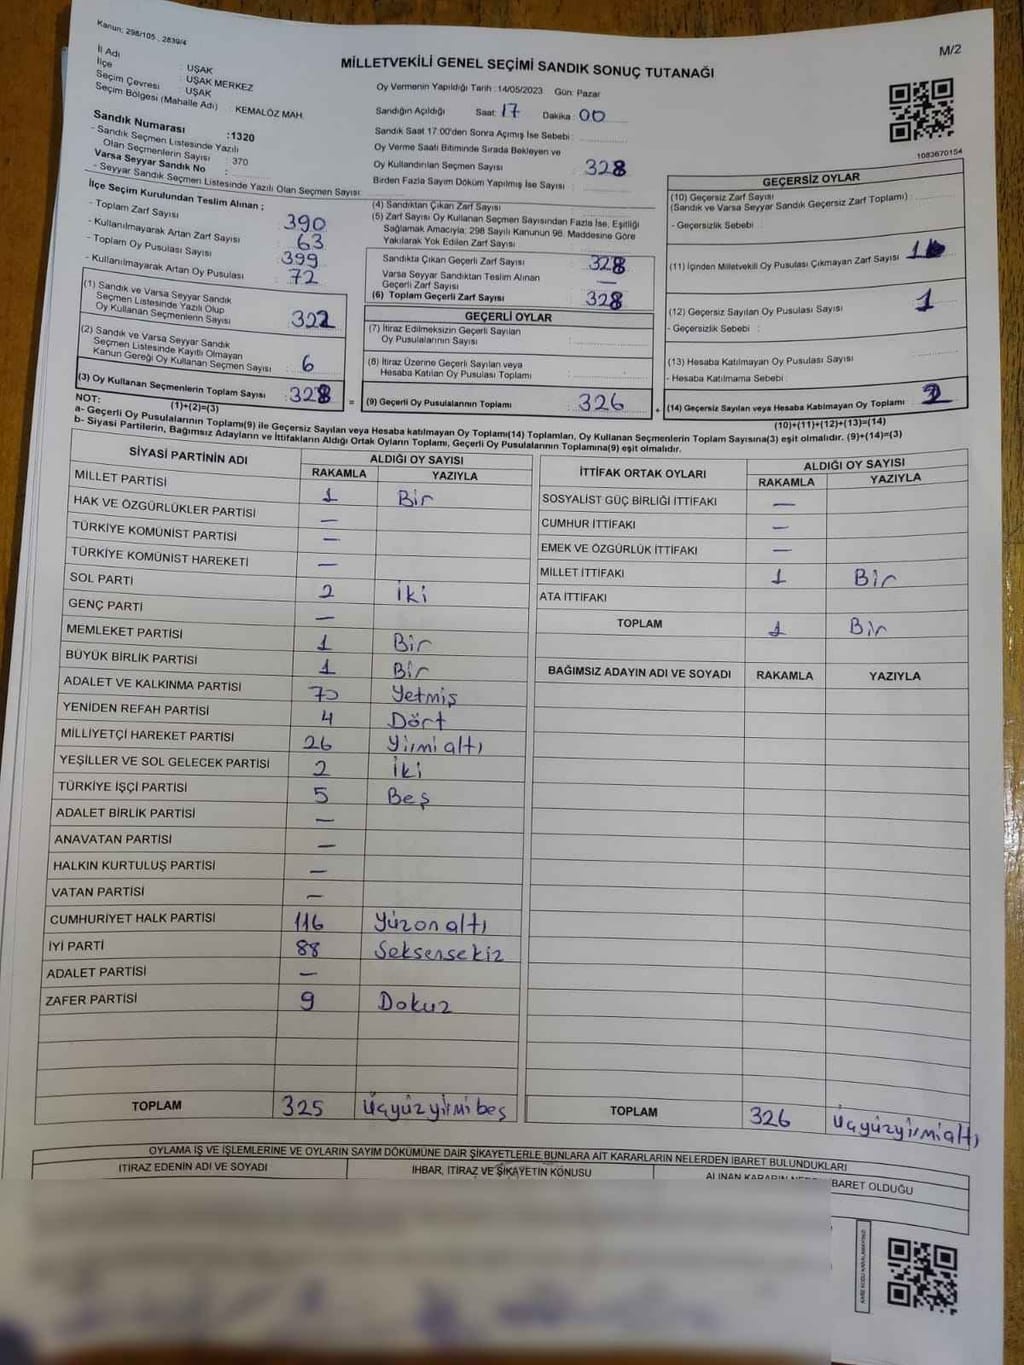 Kanun: 298/105 , 2839/4
M/2
MİLLETVEKİLİ GENEL SEÇİMİ SANDIK SONUÇ TUTANAĞI
İl Adı : UŞAK
İlçe : UŞAK MERKEZ
Seçim Çevresi : UŞAK
Seçim Bölgesi (Mahalle Adı) : KEMALÖZ MAH.
Sandık Numarası : 1320
- Sandık Seçmen Listesinde Yazılı
Olan Seçmenlerin Sayısı : 370
Varsa Seyyar Sandık No :
- Seyyar Sandık Seçmen Listesinde Yazılı Olan Seçmen Sayısı:
Oy Vermenin Yapıldığı Tarih : 14/05/2023 Gün: Pazar
Sandığın Açıldığı Saat: 17 Dakika: 00
Sandık Saat 17:00'den Sonra Açılmış İse Sebebi :
Oy Verme Saati Bitiminde Sırada Bekleyen ve
Oy Kullandırılan Seçmen Sayısı : 328
Birden Fazla Sayım Döküm Yapılmış İse Sayısı :
1083670154
İlçe Seçim Kurulundan Teslim Alınan ;
- Toplam Zarf Sayısı : 390
- Kullanılmayarak Artan Zarf Sayısı : 63
- Toplam Oy Pusulası Sayısı : 399
- Kullanılmayarak Artan Oy Pusulası : 72
(1) Sandık ve Varsa Seyyar Sandık
Seçmen Listesinde Yazılı Olup
Oy Kullanan Seçmenlerin Sayısı : 322
(2) Sandık ve Varsa Seyyar Sandık
Seçmen Listesinde Kayıtlı Olmayan
Kanun Gereği Oy Kullanan Seçmen Sayısı : 6
(3) Oy Kullanan Seçmenlerin Toplam Sayısı : 328
(1)+(2)=(3)
(4) Sandıktan Çıkan Zarf Sayısı :
(5) Zarf Sayısı Oy Kullanan Seçmen Sayısından Fazla İse, Eşitliği
Sağlamak Amacıyla; 298 Sayılı Kanunun 98. Maddesine Göre
Yakılarak Yok Edilen Zarf Sayısı :
Sandıkta Çıkan Geçerli Zarf Sayısı : 328
Varsa Seyyar Sandıktan Teslim Alınan
Geçerli Zarf Sayısı : —
(6) Toplam Geçerli Zarf Sayısı : 328
GEÇERLİ OYLAR
(7) İtiraz Edilmeksizin Geçerli Sayılan
Oy Pusulalarının Sayısı :
(8) İtiraz Üzerine Geçerli Sayılan veya
Hesaba Katılan Oy Pusulası Toplamı :
= (9) Geçerli Oy Pusulalarının Toplamı : 326 +
GEÇERSİZ OYLAR
(10) Geçersiz Zarf Sayısı
(Sandık ve Varsa Seyyar Sandık Geçersiz Zarf Toplamı) :
- Geçersizlik Sebebi :
(11) İçinden Milletvekili Oy Pusulası Çıkmayan Zarf Sayısı : 1
(12) Geçersiz Sayılan Oy Pusulası Sayısı : 1
- Geçersizlik Sebebi :
(13) Hesaba Katılmayan Oy Pusulası Sayısı :
- Hesaba Katılmama Sebebi :
(14) Geçersiz Sayılan veya Hesaba Katılmayan Oy Toplamı : 2
(10)+(11)+(12)+(13)=(14)
NOT:
a- Geçerli Oy Pusulalarının Toplamı(9) ile Geçersiz Sayılan veya Hesaba katılmayan Oy Toplamı(14) Toplamları, Oy Kullanan Seçmenlerin Toplam Sayısına(3) eşit olmalıdır. (9)+(14)=(3)
b- Siyasi Partilerin, Bağımsız Adayların ve İttifakların Aldığı Ortak Oyların Toplamı, Geçerli Oy Pusulalarının Toplamına(9) eşit olmalıdır.
SİYASİ PARTİNİN ADI ALDIĞI OY SAYISI
RAKAMLA YAZIYLA
MİLLET PARTİSİ 1 Bir
HAK VE ÖZGÜRLÜKLER PARTİSİ —
TÜRKİYE KOMÜNİST PARTİSİ —
TÜRKİYE KOMÜNİST HAREKETİ —
SOL PARTİ 2 iki
GENÇ PARTİ —
MEMLEKET PARTİSİ 1 Bir
BÜYÜK BİRLİK PARTİSİ 1 Bir
ADALET VE KALKINMA PARTİSİ 70 Yetmiş
YENİDEN REFAH PARTİSİ 4 Dört
MİLLİYETÇİ HAREKET PARTİSİ 26 Yirmi altı
YEŞİLLER VE SOL GELECEK PARTİSİ 2 İki
TÜRKİYE İŞÇİ PARTİSİ 5 Beş
ADALET BİRLİK PARTİSİ —
ANAVATAN PARTİSİ —
HALKIN KURTULUŞ PARTİSİ —
VATAN PARTİSİ —
CUMHURİYET HALK PARTİSİ 116 Yüzon altı
İYİ PARTİ 88 Seksensekiz
ADALET PARTİSİ —
ZAFER PARTİSİ 9 Dokuz
TOPLAM 325 Üçyüzyirmi beş
İTTİFAK ORTAK OYLARI ALDIĞI OY SAYISI
RAKAMLA YAZIYLA
SOSYALİST GÜÇ BİRLİĞİ İTTİFAKI —
CUMHUR İTTİFAKI —
EMEK VE ÖZGÜRLÜK İTTİFAKI —
MİLLET İTTİFAKI 1 Bir
ATA İTTİFAKI
TOPLAM 1 Bir
BAĞIMSIZ ADAYIN ADI VE SOYADI RAKAMLA YAZIYLA
TOPLAM 326 Üçyüzyirmialtı
OYLAMA İŞ VE İŞLEMLERİNE VE OYLARIN SAYIM DÖKÜMÜNE DAİR ŞİKAYETLERLE BUNLARA AİT KARARLARIN NELERDEN İBARET BULUNDUKLARI
İTİRAZ EDENİN ADI VE SOYADI İHBAR, İTİRAZ VE ŞİKAYETİN KONUSU ALINAN KARARIN İBARET OLDUĞU